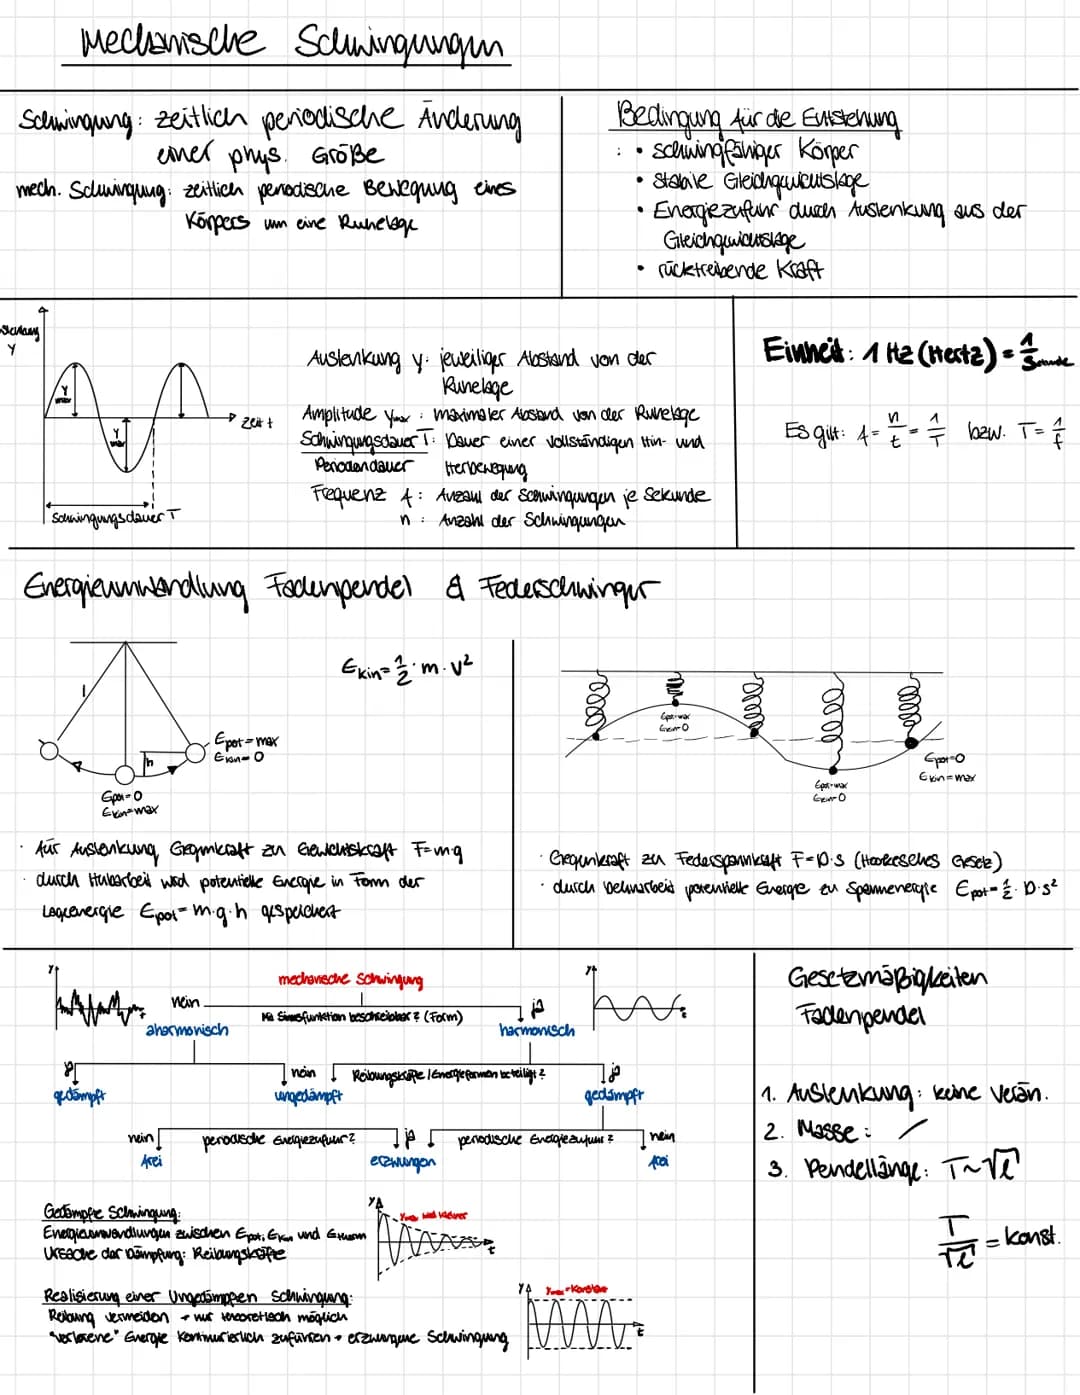 Mechanische Schwingungen
Schwingung: zeitlich periodische Änderung
einer phys. Größe
mech. Schwingung: zeitlich periodische Bewegung eines
Körpers um eine Ruhelage
Bedingung für die Entstehung
: • schwingfähiger Körper
• stabile Gleichgewichtslage
• Energiezufuhr durch Auslenkung aus der
Gleichgewichtslage
• rücktreibende Kraft
y
y max
y max
Zeit t
Schwingungsdauer T
Auslenkung y: jeweiliger Abstand von der
Ruhelage
Amplitude ymax: maximaler Abstand von der Ruhelage
Schwingungsdauer T: Dauer einer vollständigen Hin- und
Periodendauer Herbewegung
Frequenz f: Anzahl der Schwingungen je Sekunde
n: Anzahl der Schwingungen
Einheit: 1 Hz (Hertz) = 1/Sekunde
Es gilt: f = n/t = 1/T bzw. T = 1/f
Energieumwandlung Fadenpendel & Federschwinger
l
h
Epot = max
Ekin = 0
Epot = 0
Ekin = max
Ekin = 1/2 · m · v²
• für Auslenkung Gegenkraft zu Gewichtskraft F = m·g
• durch Hubarbeit wird potentielle Energie in Form der
Lageenergie Epot = m·g·h gespeichert
Epot = max
Ekin = 0
Epot = max
Ekin = 0
Epot = 0
Ekin = max
• Gegenkraft zu Federspannkraft F = D·s (Hookesches Gesetz)
• durch Dehnarbeit potentielle Energie zu Spannenergie Epot = 1/2 · D·s²
y
t
mechanische Schwingung
nein
Mit Sinusfunktion beschreibbar? (Form)
ja
aharmonisch
harmonisch
y
t
ja
nein
Reibungskräfte / Energieformen beteiligt?
ja
gedämpft
ungedämpft
gedämpft
nein
periodische Energiezufuhr?
ja
periodische Energiezufuhr?
nein
frei
erzwungen
frei
Gedämpfte Schwingung:
Energieumwandlungen zwischen Epot, Ekin und Etherm
Ursache der Dämpfung: Reibungskräfte
y
ymax wird kleiner
t
Realisierung einer Ungedämpften Schwingung:
Reibung vermeiden → nur theoretisch möglich
"verlorene" Energie kontinuierlich zuführen → erzwungene Schwingung
y
ymax = konstant
t
Gesetzmäßigkeiten
Fadenpendel
1. Auslenkung: keine Verän.
2. Masse: /
3. Pendellänge: T ~ √l
T/√l = konst.